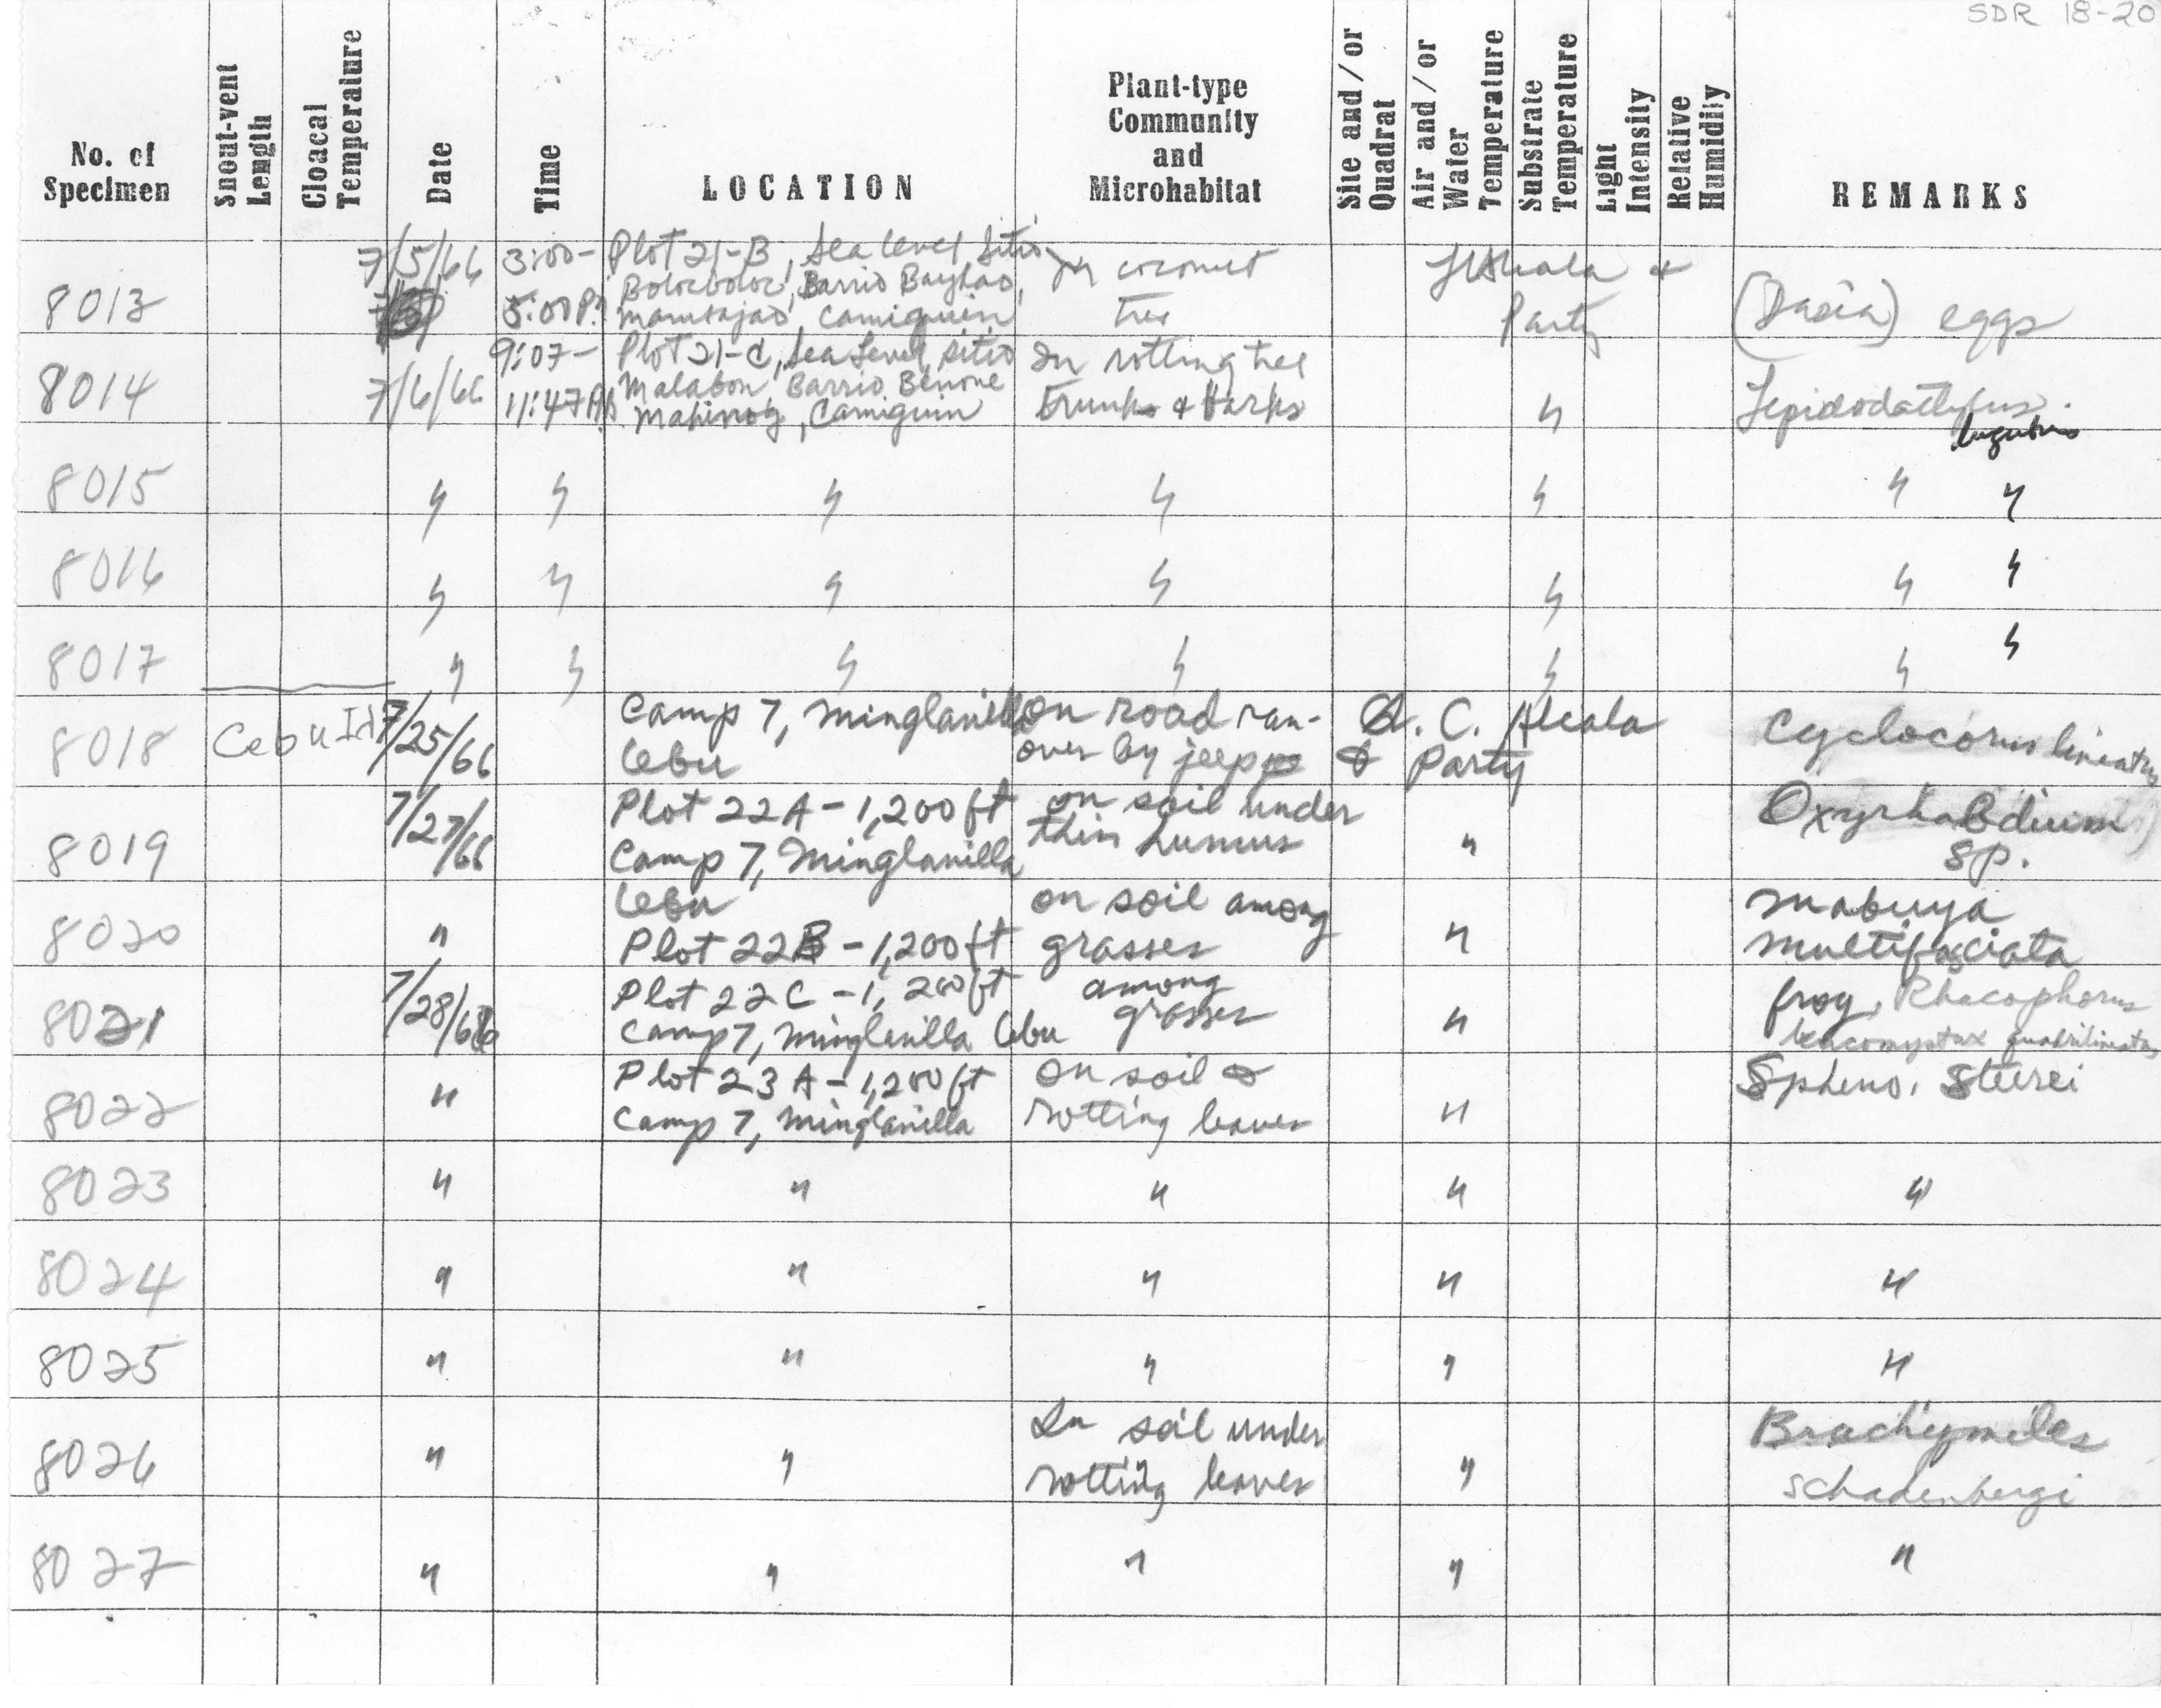 SDR 18-20
No. of Specimen Snout-vent Length Cloacal Temperature Date Time LOCATION Plant-type Community and Microhabitat Site and/or Quadrat Air and/or Water Temperature Substrate Temperature Light Intensity Relative Humidity REMARKS
8013 7/5/66 3:00- Plot 21-B, Sea level, Sitio In coconut Alcala &
5:00 P. Barrio Camiguin tree Party (Dasia) eggs
8014 7/6/66 9:07- Plot 21-C, Sea Level, Sitio In rotting tree
11:47 AM Malabon Barrio Benone trunks & barks " Lepidodactylus
Mahinog, Camiguin lugubris
8015 " " " " " " "
8016 " " " " " " "
8017 " " " " " " "
8018 Cebu Id 7/25/66 Camp 7, Minglanilla On road ran- A. C. Alcala Cyclocorus lineatus
Cebu over by jeep & Party
8019 7/27/66 Plot 22A - 1,200 ft on soil under Oxyrhabdium
Camp 7, Minglanilla thin humus " sp.
Cebu on soil among Mabuya
8020 " Plot 22B - 1,200 ft grasses " multifasciata
8021 7/28/66 Plot 22C - 1,200 ft among frog, Rhacophorus
Camp 7, Minglanilla Cebu grasses " leucomystax quadrilineatus
8022 " Plot 23A - 1,200 ft On soil & Spheno. Steerei
Camp 7, Minglanilla rotting leaves "
8023 " " " " "
8024 " " " " "
8025 " " " " "
8026 " " In soil under " Brachymeles
rotting leaves schadenbergi
8027 " " " " "